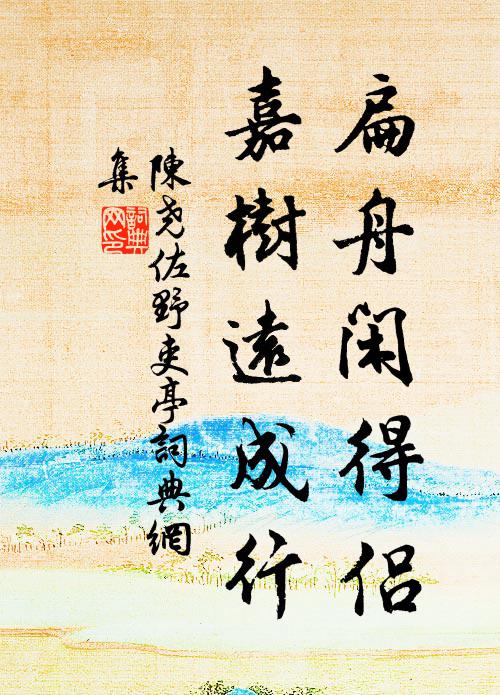 扁舟閑得侶
嘉樹遠成行
陳堯佐野吏亭詞典網
集
詞典
网印